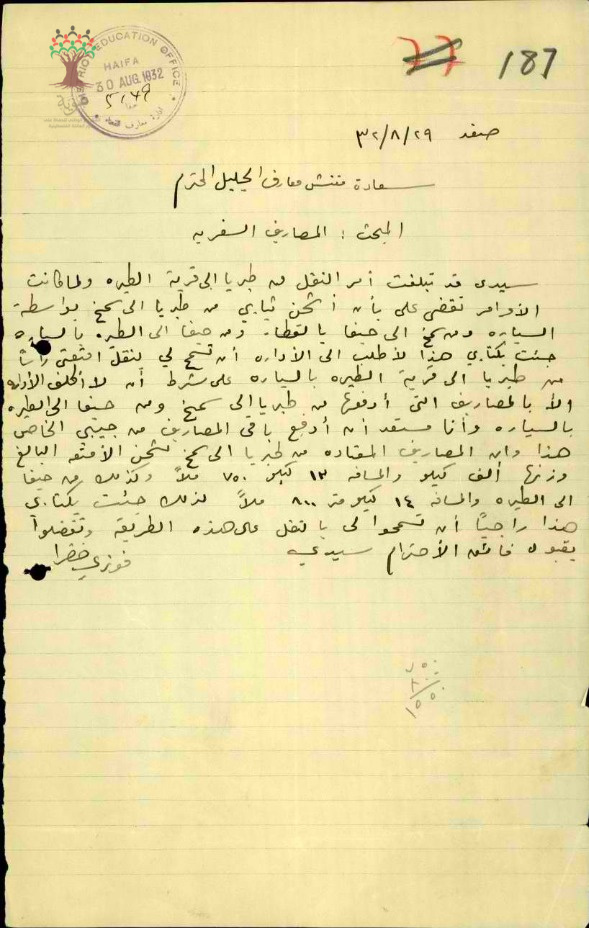 187
77
DISTRICT EDUCATION OFFICE
HAIFA
30 AUG. 1932
5149
صفد ٣٢/٨/٢٩
سعادة مفتش معارف الجليل المحترم
المبحث : المصاريف السفريه
سيدي قد تبلغت أمر النقل من طبريا الى قرية الطيره ولما كانت
الأوامر تقضي علي بأن أشحن ثيابي من طبريا الى سمخ بواسطة
السياره ومن سمخ الى حيفا بالقطار ومن حيفا الى الطيره بالسياره
جئت بكتابي هذا لأطلب الى الأداره أن تسمح لي بنقل امتعتي رأساً
من طبريا الى قرية الطيره بالسياره على شرط أن لا اكلف الأداره
الا بالمصاريف التي أدفعها من طبريا الى سمخ ومن حيفا الى الطيره
بالسياره وأنا مستعد أن أدفع باقي المصاريف من جيبي الخاص
هذا وان المصاريف المعتاده من طبريا الى سمخ لشحن الأمتعه البالغ
وزنها ألف كيلو والمسافه ١٣ كيلو ٧٥٠ ملاً وكذلك من حيفا
الى الطيره والمسافه ١٤ كيلو متر ٨٠٠ ملاً لذلك جئت بكتابي
هذا راجياً أن تسمحوا لي بالنقل على هذه الطريقه وتفضلوا
بقبول فائق الأحترام سيدي
فوزي خضرا
٧٥٠
٨٠٠
١٥٥٠